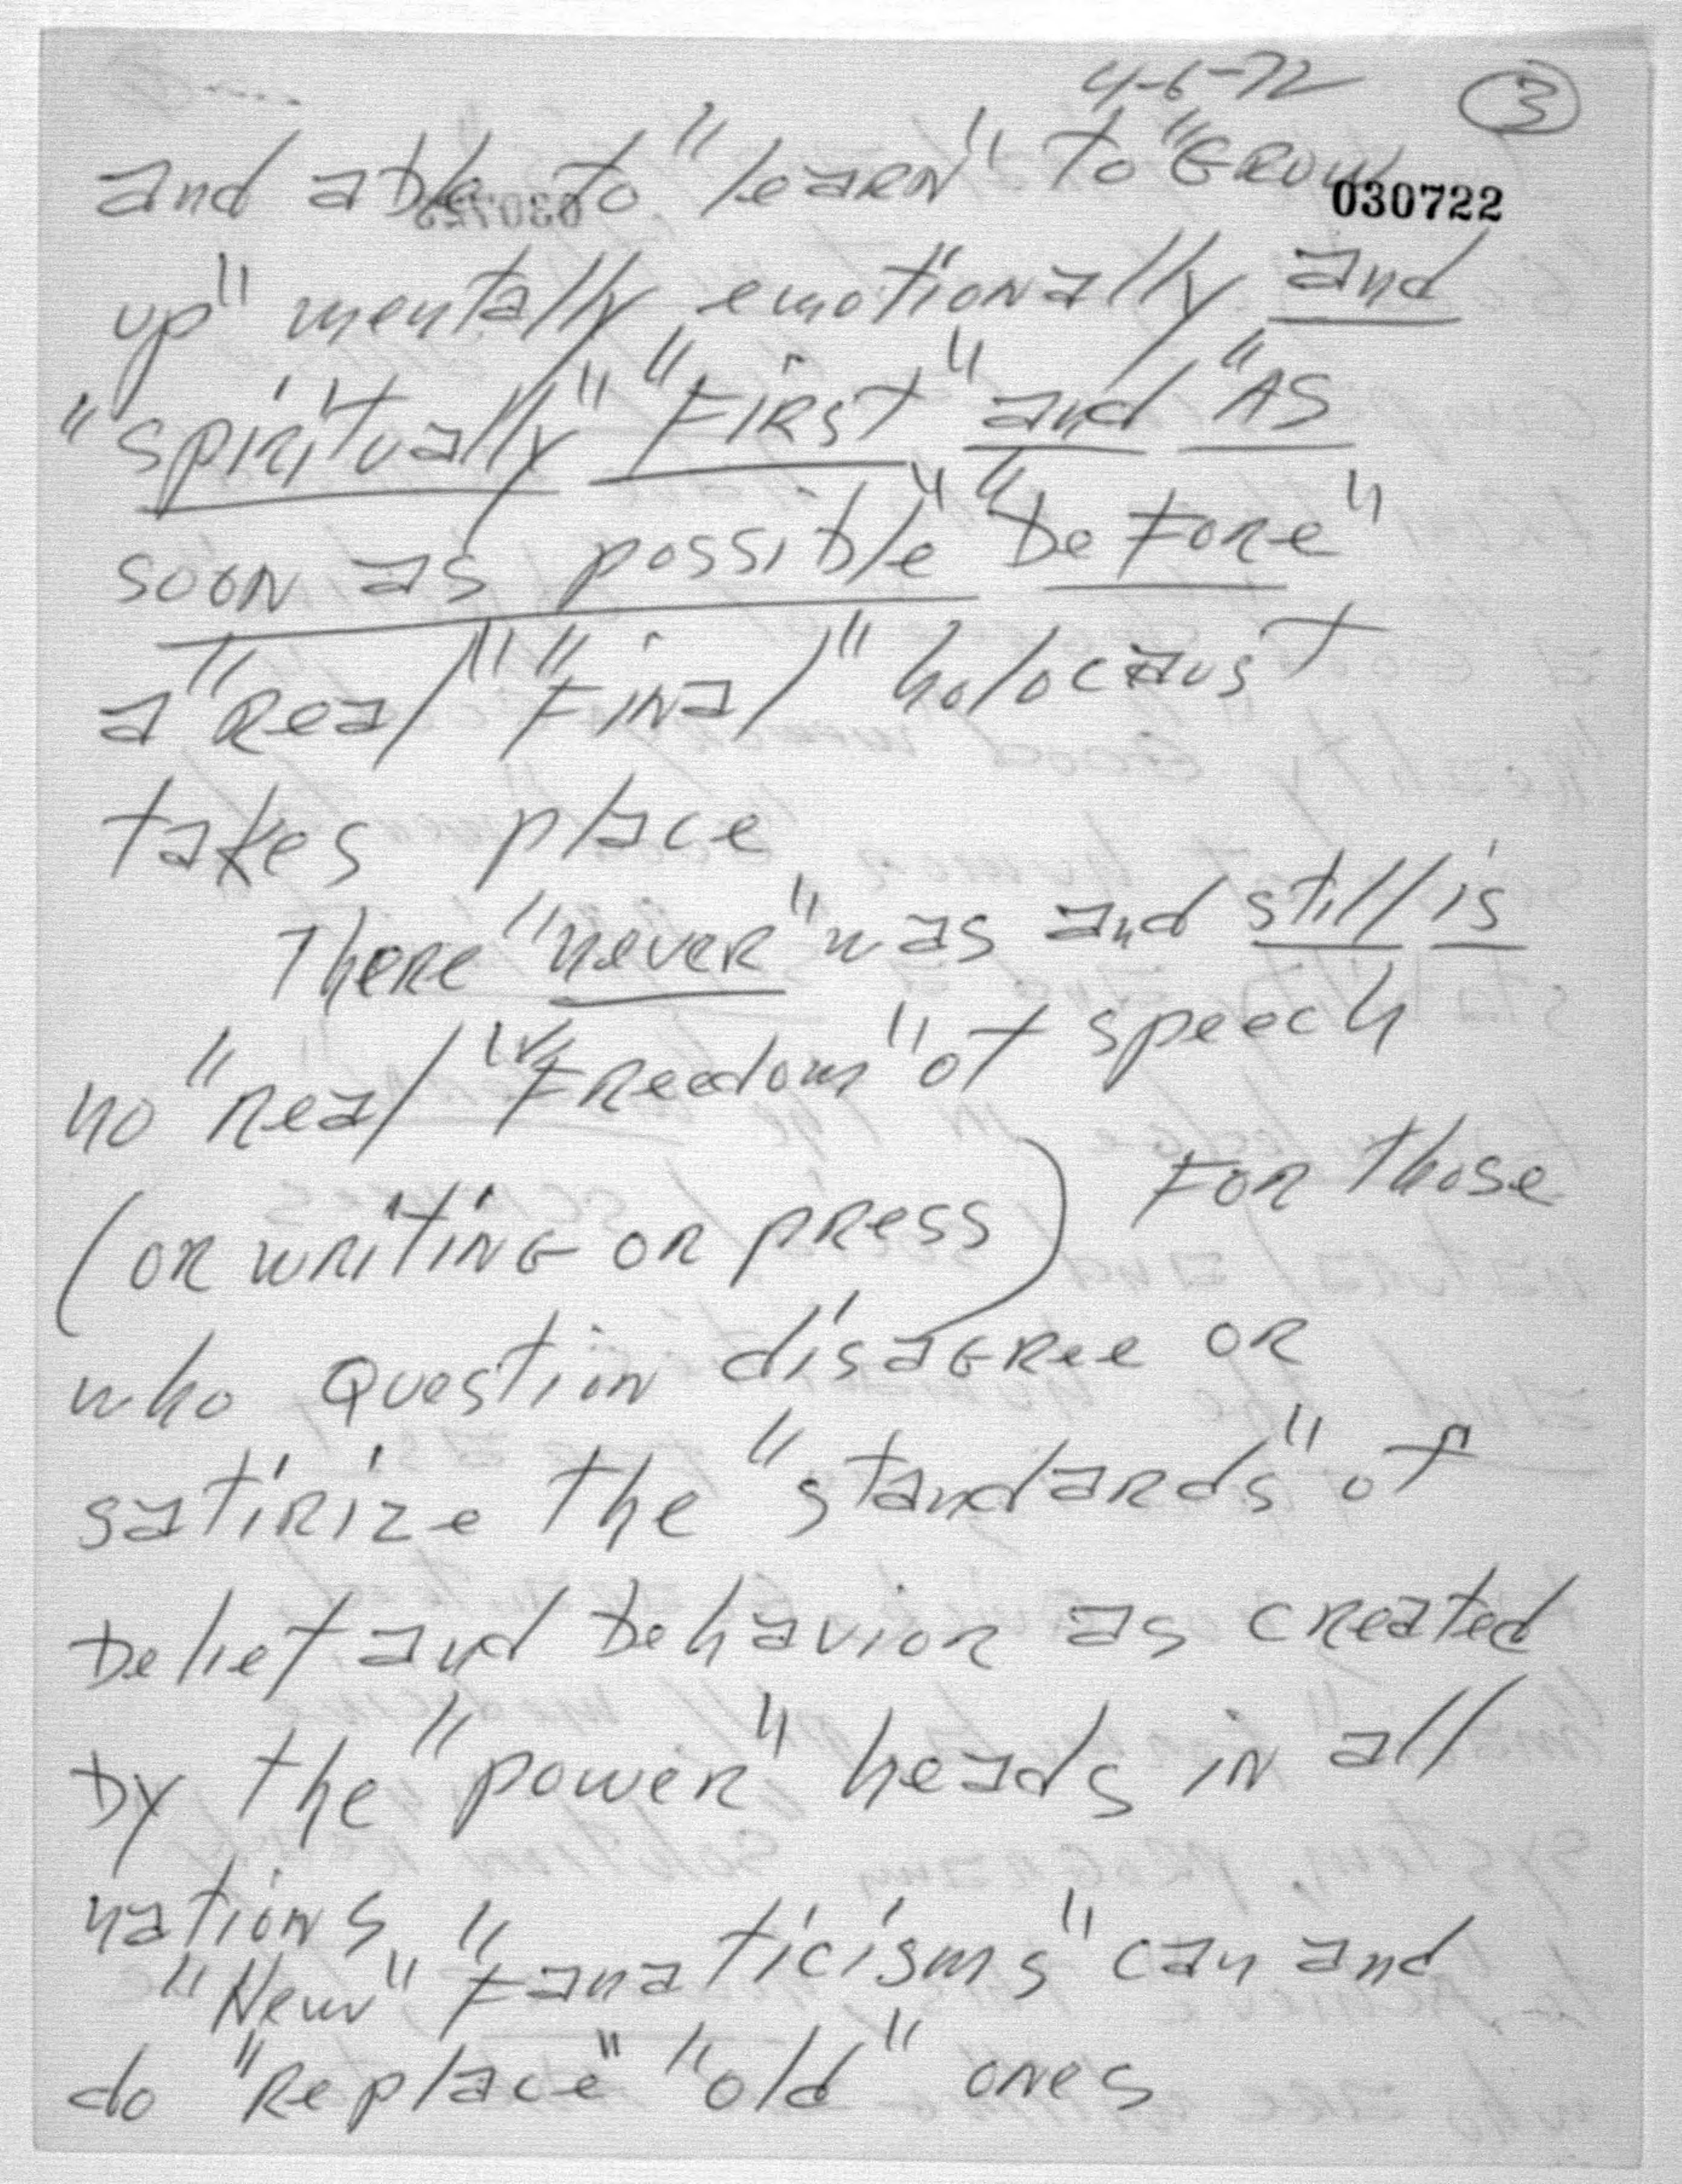 4-6-72 3
and able to "learn" to "GROW
030722
up" mentally emotionally and
"spiritually" "FIRST" and "AS
soon as possible" "beFore"
a "Real" "Final" holocaust
takes place
There "never" was and still is
no "Real" "FReedom" of speech
(OR WRITING OR PRESS) FOR Those
who Question disaGRee OR
satirize the "standards" of
belief and behavior as cReated
by the "poweR" heads in all
nations
"New" "Fanaticisms" can and
do "Replace" "old" ones